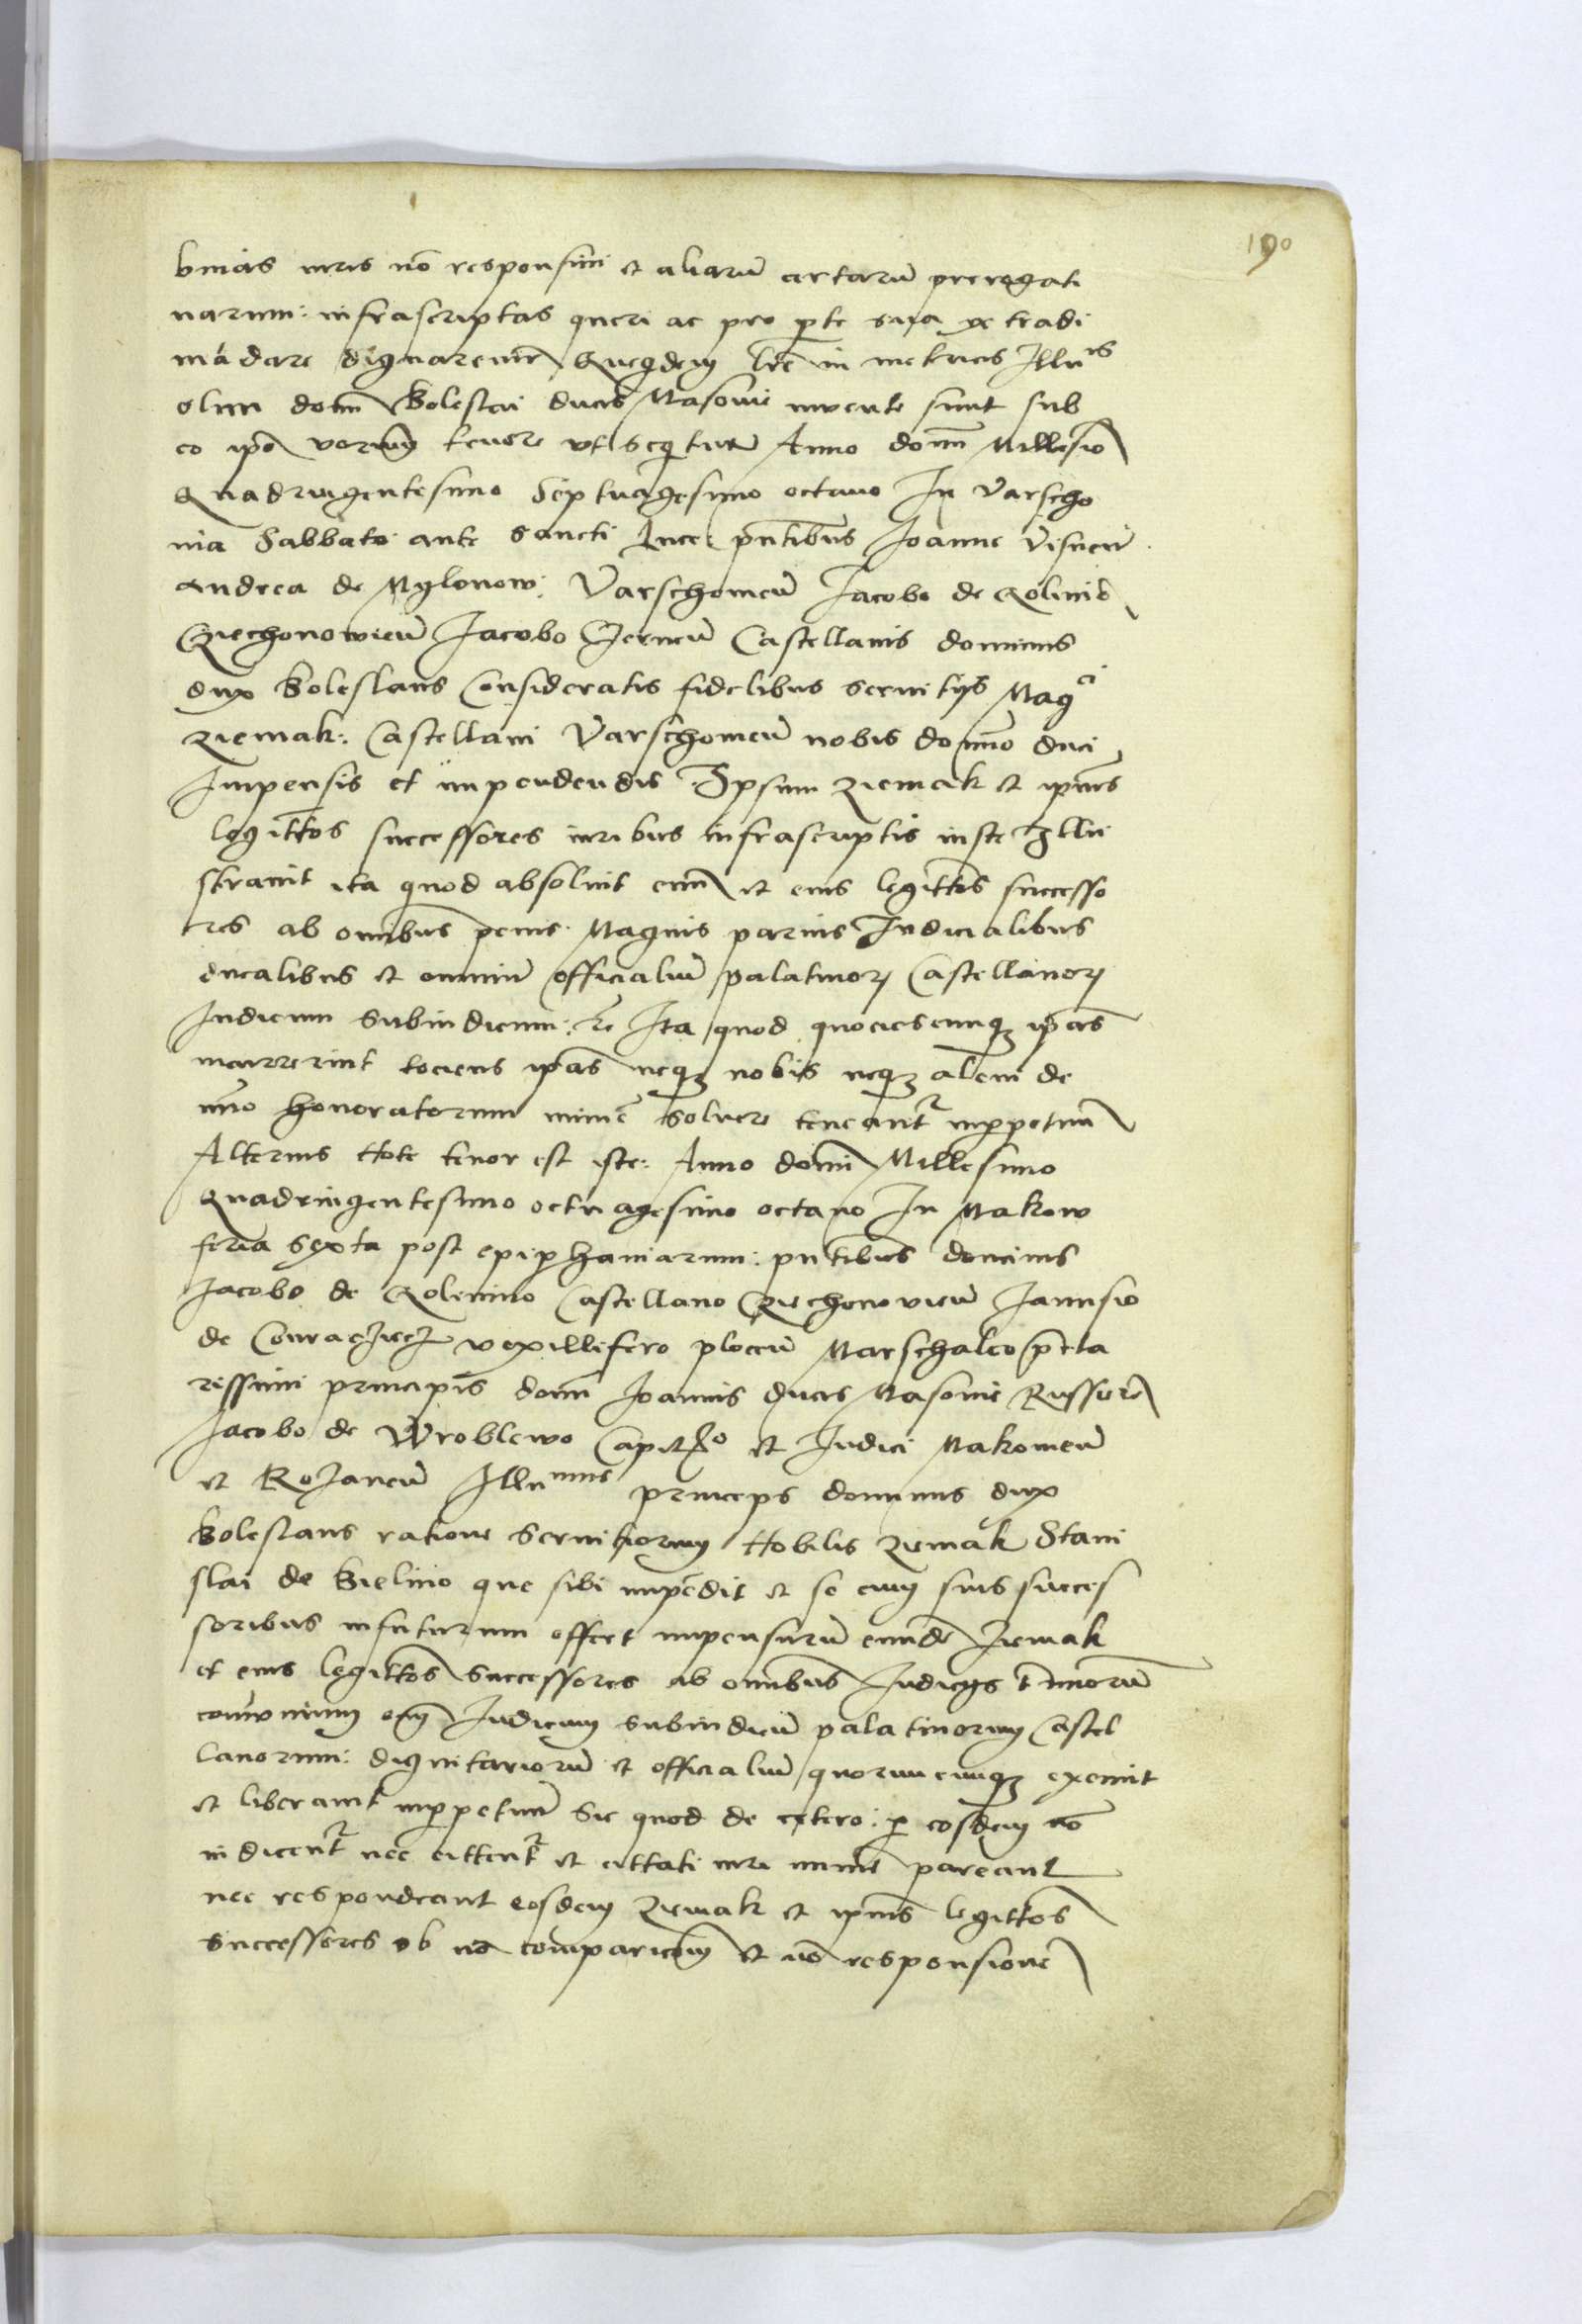 190
binas iuris nō responsiui et aliarū certarū preregati
uarum: infrascriptas queri ac pro p̱te sua ex tradi
mādare dignaremr̄ Queqdem lr̄e in metricis Illu^ris
olim domī Boleslai ducis Masouie inuente sunt sub
eo ipō verorum tenore vt seqitur Anno domī Millesiō
Quadringentesimo Septuagesimo octauo In Varscho
uia Sabbato ante sancti Luce: pn̄tibus Joanne Visneñ.
Andrea de Mylonow: Varschouieñ Jacobo de Golmiō
Cziechonowieñ Jacobo Czerneñ Castellanis dominus
dux Boleslaus Consideratis fidelibus seruitijs Mag^ci
Ziemak: Castellani Varschouieñ nobis domīo duci
Impensis et impendendis Ipsum Ziemak et ipius
legittōs successores iuribus infrascriptis iuste Illu
strauit ita quod absoluit eum et eius legittōs successo
res ab omībus penis. Magnis paruis Iudicialibus
ducalibus et omnium officialiū palatinorꝝ Castellanorꝝ
Iudicum Subiudicum: ꝛc Ita quod quociescunqꝫ ip̄as
incurrerint tociens ip̄as neqꝫ nobis neqꝫ alicui de
nr̄o honoratorum minīe soluere teneantr inꝑpetuū
Alterius Note tenor est iste: Anno domī Millesimo
Quadringentesimo octuagesimo octauo In Makow
feria sexta post epiphaniarum: pn̄tibus dominis
Jacobo de Golemino Castellano Cziechonouieñ Janusio
de Conraczicz vexillifero ploceñ Marschalco p̄cla
rissimi principis domī Joannis ducis Masouie Russie ꝛc
Jacobo de Wroblewo Capitꝰo et Iudici Makouieñ
et Rozaneñ Illu^mus princeps dominus dux
Boleslaus ratione Seruitiorum Nobilis Ziemak Stani
slai de Bielino que sibi impēdit et se cum suis succes
soribus infuturum offert impensurū eundē Ziemak
et eius legittōs Successores ab omībus Iudicijs t̄minorū
comīnium oīm Iudicum subiudicū palatinorum Castel
lanorum: dignitariorū et officialiū quorumcunqꝫ exemit
et liberauit inꝑpetuū Sic quod de cetero: ꝑ eosdem nō
iudicentr nec cittentr et cittati iure minīe pareant
nec respondeant eosdem Ziemak et ipius legittōs
Successores ob nō comparicōem et nō responsionē